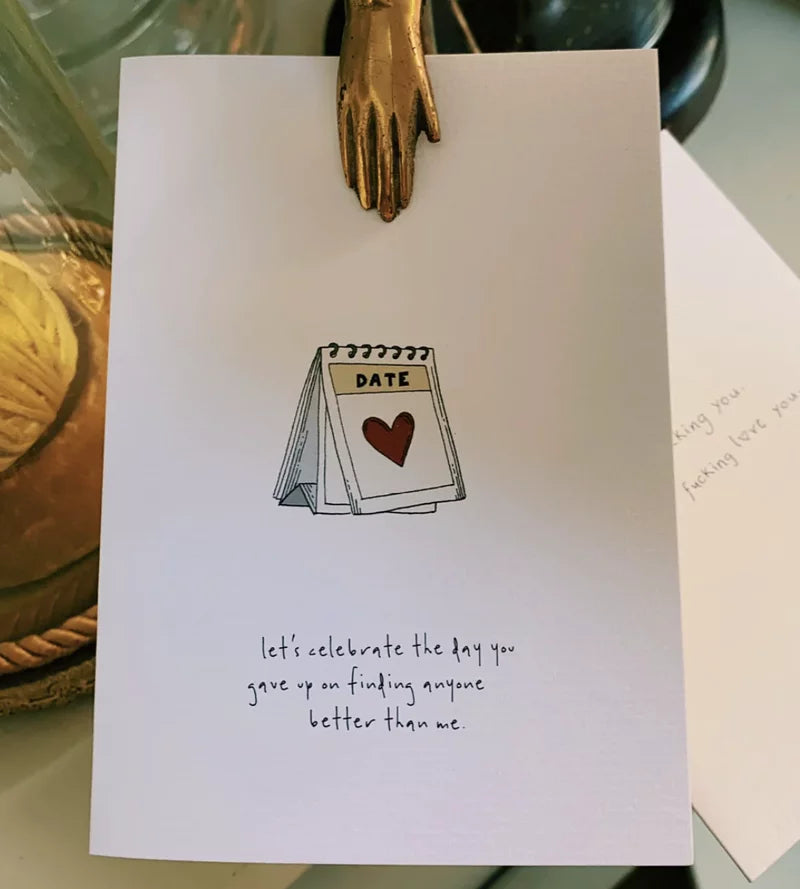 DATE
let's celebrate the day you
gave up on finding anyone
better than me.
king you.
fucking love you.